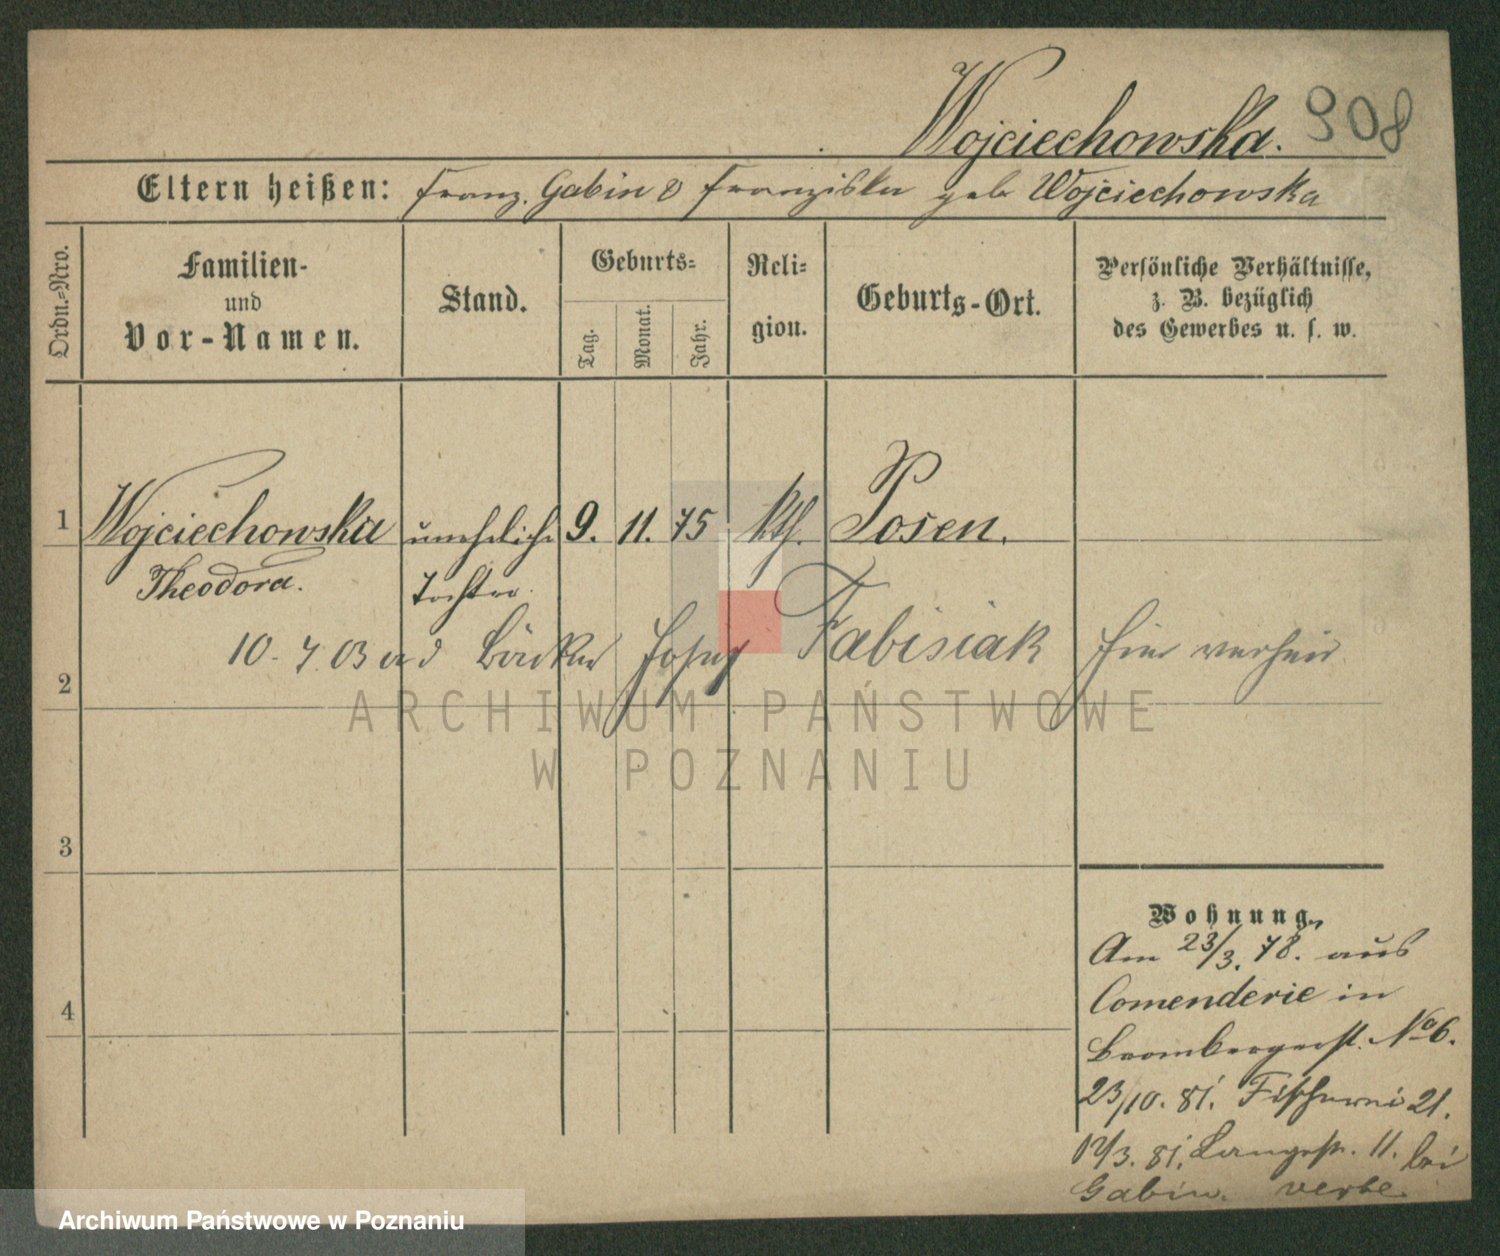 Wojciechowska. 908
Eltern heißen: Franz. Gabin & Franziska geb Wojciechowska
Ordn.=Nro.
Familien-
und
Vor-Namen.
Stand.
Geburts=
Tag.
Monat.
Jahr.
Reli=
gion.
Geburts-Ort.
Persönliche Verhältnisse,
z. B. bezüglich
des Gewerbes u. s. w.
1 Wojciechowska uneheliche 9. 11. 75 kth. Posen.
Theodora. Tochter.
10. 7. 03 a d Bäcker Josef Fabisiak hier verheir
2
3
4
Wohnung.
Am 23/3. 78. aus
Comenderie in
Brombergerst. No 6.
23/10. 81. Fischerei 21.
12/3. 81. Langestr. 11. bei
Gabin.
ARCHIWUM PAŃSTWOWE
W POZNANIU
Archiwum Państwowe w Poznaniu